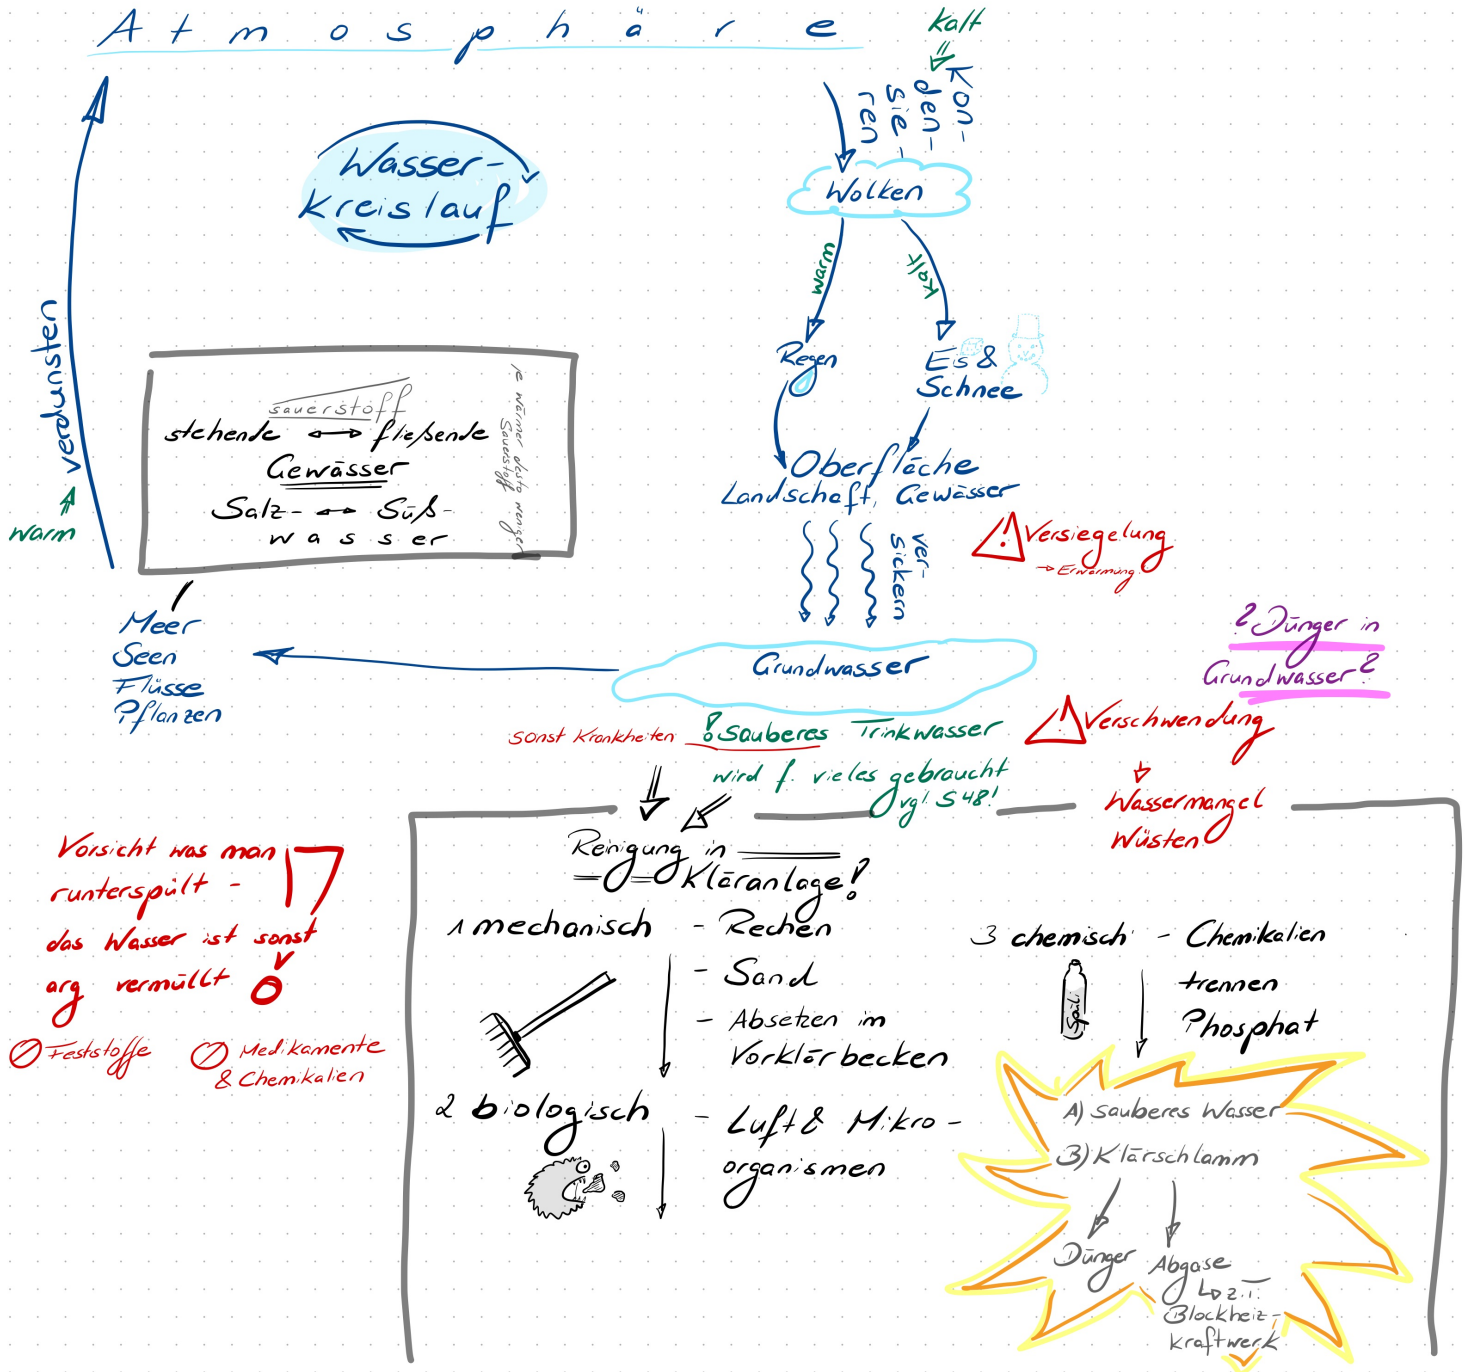 Atmosphäre
kalt
Kon-
den-
sie-
ren
Wasser-
kreislauf
Wolken
warm
kalt
Regen
Eis &
Schnee
verdunsten
warm
sauerstoff
stehende ↔ fließende
Gewässer
Salz- ↔ Süß-
wasser
je wärmer desto weniger
Sauerstoff
Oberfläche
Landschaft, Gewässer
ver-
sickern
Versiegelung
→ Erwärmung
Meer
Seen
Flüsse
Pflanzen
Grundwasser
? Dünger in
Grundwasser?
sonst Krankheiten
! Sauberes Trinkwasser
wird f. vieles gebraucht
vgl. S 48!
Verschwendung
Wassermangel
Wüsten
Vorsicht was man
runterspült -
das Wasser ist sonst
arg vermüllt
Feststoffe
Medikamente
& Chemikalien
Reinigung in
Kläranlage!
1 mechanisch - Rechen
- Sand
- Absetzen im
Vorklärbecken
2 biologisch - Luft & Mikro-
organismen
3 chemisch - Chemikalien
trennen
Phosphat
Spüli
A) sauberes Wasser
B) Klärschlamm
Dünger
Abgase
↳ z.T.
Blockheiz-
kraftwerk